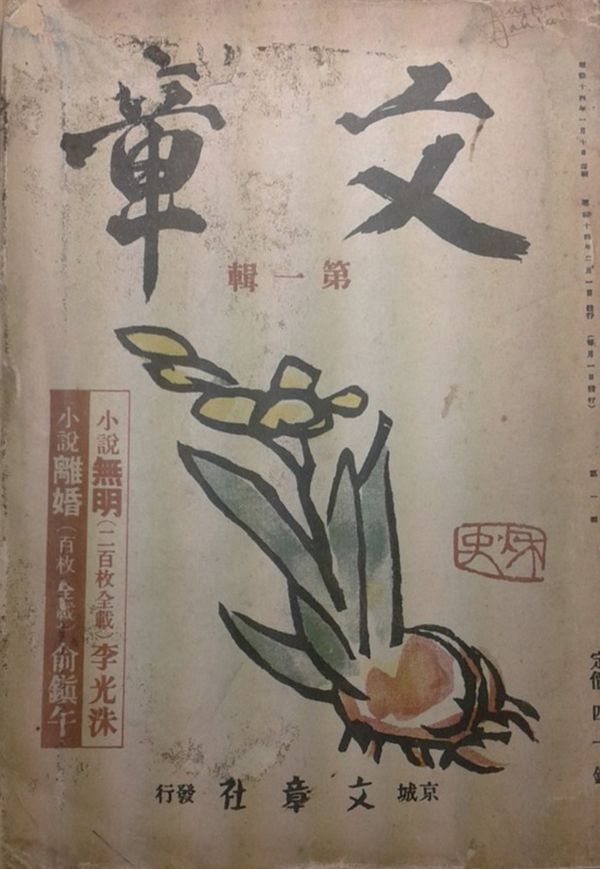 文章
第一輯
昭和十四年二月一日發行（每月一日發行）
第一輯
定價四十錢
小說無明（二百枚全載）李光洙
小說離婚（百枚全載）俞鎭午
京城文章社發行